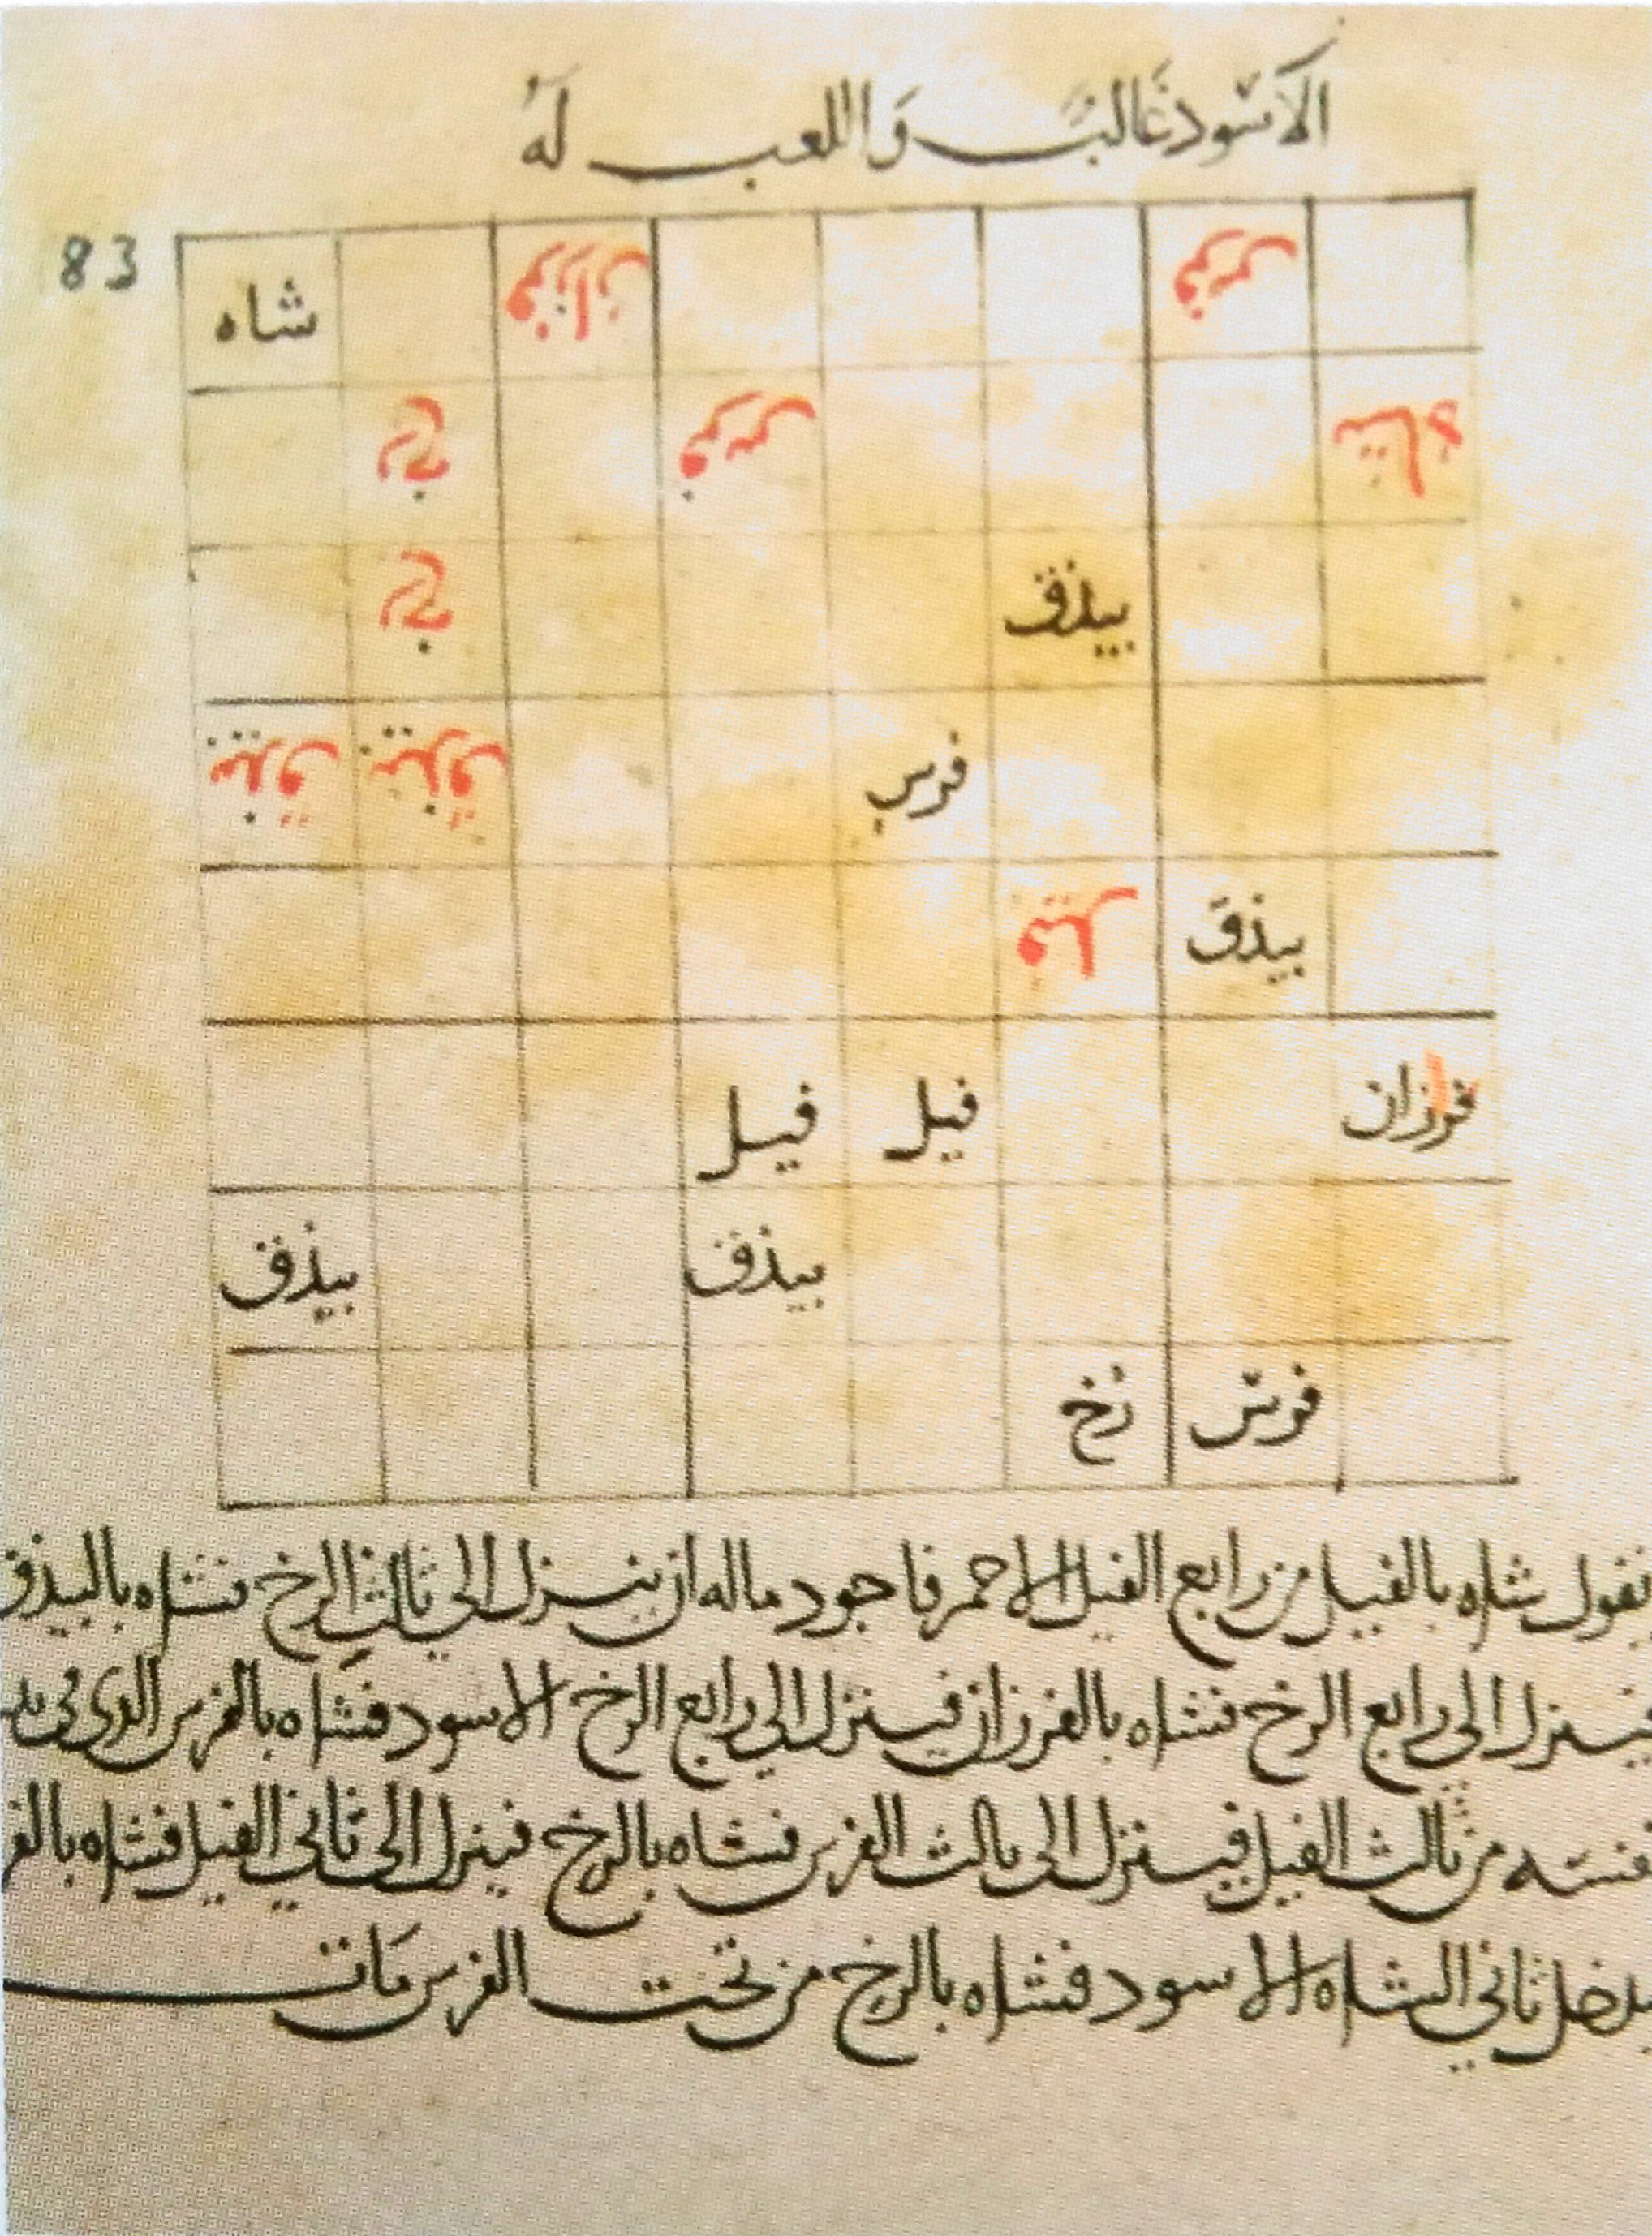 الاسود غالب واللعب له
83
شاه فرزان فرس
رخ فرس شاه
رخ بيذق
بيذق بيذق فرس
فيل بيذق
فيل فيل فرزان
بيذق بيذق
رخ فرس
تقول شاه بالفيل من رابع الفيل الاحمر فاجود ماله ان ينزل الى ثالث الرخ فشاه بالبيذق
فينزل الى رابع الرخ فشاه بالفرزان فينزل الى رابع الرخ الاسود فشاه بالفرس الذي في
من ثالث الفيل فينزل الى ثالث الفرس فشاه بالرخ فينزل الى ثاني الفيل فشاه
يدخل ثاني الشاه الاسود فشاه بالرخ من تحت الفرس مات